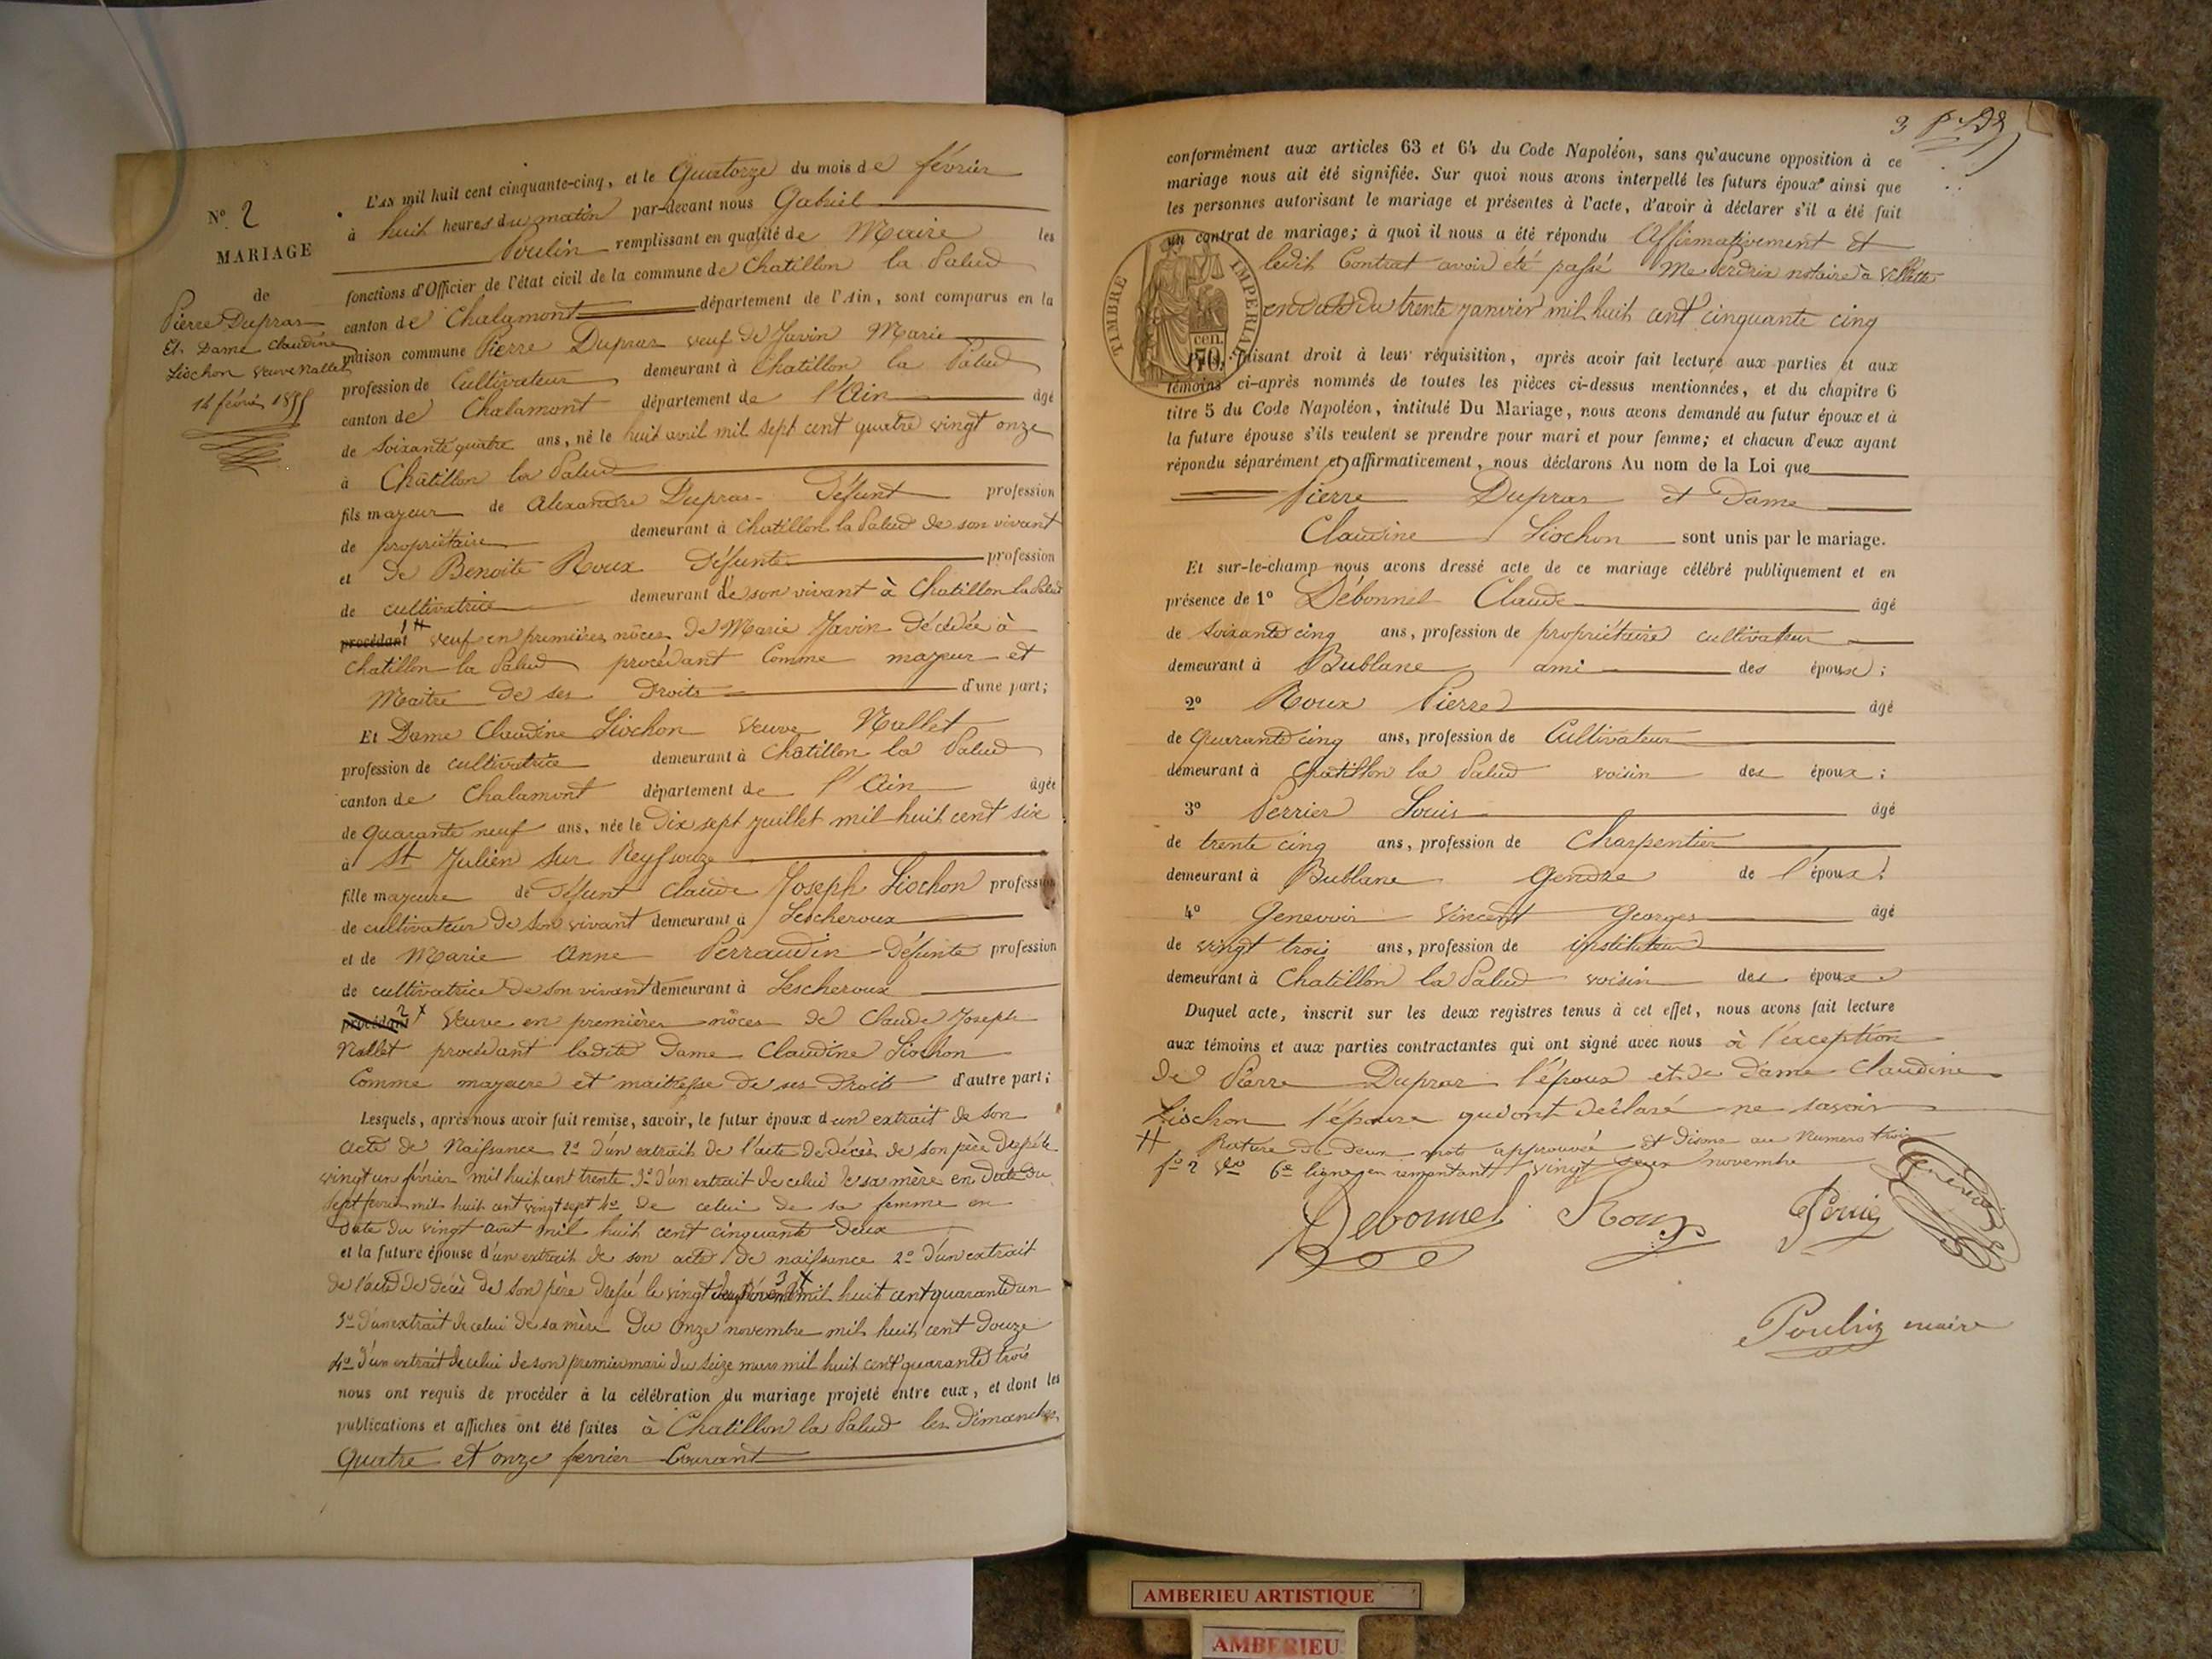 Nº. 2
MARIAGE
de
Pierre Dupras
Et Dame Claudine
Liochon veuve Nallet
14 février 1855
L'AN mil huit cent cinquante-cinq, et le Quatorze du mois de février
à huit heures du matin par-devant nous Gabriel
Poulin remplissant en qualité de Maire les
fonctions d'Officier de l'état civil de la commune de Chatillon la Palud
canton de Chalamont département de l'Ain, sont comparus en la
maison commune Pierre Dupras veuf de Javin Marie
profession de Cultivateur demeurant à Chatillon la Palud
canton de Chalamont département de l'Ain âgé
de Soixante quatre ans, né le huit avril mil sept cent quatre vingt onze
à Châtillon la Palud
fils majeur de Alexandre Dupras Défunt profession
de propriétaire demeurant à Chatillon la Palud de son vivant
et de Benoite Roux Défunte profession
de cultivatrice demeurant de son vivant à Chatillon la Palud
procédant 1 veuf en premières nôces de Marie Javin décédée à
Chatillon la Palud procédant Comme majeur et
Maître de ses Droits d'une part;
Et Dame Claudine Liochon veuve Nallet
profession de cultivatrice demeurant à Chatillon la Palud
canton de Chalamont département de l'Ain âgée
de quarante neuf ans, née le Dix sept juillet mil huit cent six
à St Julien sur Reyssouze
fille majeure de défunt Claude Joseph Liochon profession
de cultivateur de son vivant demeurant à Lescheroux
et de Marie Anne Perraudin Défunte profession
de cultivatrice de son vivant demeurant à Lescheroux
procédant 2 veuve en premières nôces de Claude Joseph
Nallet procédant ladite Dame Claudine Liochon
Comme majeure et maitresse de ses Droits d'autre part;
Lesquels, après nous avoir fait remise, savoir, le futur époux d'un extrait de son
acte de Naissance 2º d'un extrait de l'acte de décès de son père
vingt un février mil huit cent trente 3º d'un extrait de celui de sa mère en date du
sept mil huit cent vingt sept 4º de celui de sa femme en
date du vingt aout mil huit cent cinquante deux
et la future épouse d'un extrait de son acte de naissance 2º d'un extrait
de l'acte de décès de son père dressé le vingt 3 mil huit cent quarante un
3º d'un extrait de celui de sa mère du onze novembre mil huit cent douze
4º d'un extrait de celui de son premier mari du seize mars mil huit cent quarante trois
nous ont requis de procéder à la célébration du mariage projeté entre eux, et dont les
publications et affiches ont été faites à Chatillon la Palud les Dimanches
quatre et onze fevrier Courant
3
conformément aux articles 63 et 64 du Code Napoléon, sans qu'aucune opposition à ce
mariage nous ait été signifiée. Sur quoi nous avons interpellé les futurs époux ainsi que
les personnes autorisant le mariage et présentes à l'acte, d'avoir à déclarer s'il a été fait
un contrat de mariage; à quoi il nous a été répondu Affirmativement et
ledit Contrat avoir été passé Me Perdrix notaire à Villette
en date du trente janvier mil huit cent cinquante cinq
TIMBRE IMPERIAL
cen. 70.
faisant droit à leur réquisition, après avoir fait lecture aux parties et aux
témoins ci-après nommés de toutes les pièces ci-dessus mentionnées, et du chapitre 6
titre 5 du Code Napoléon, intitulé Du Mariage, nous avons demandé au futur époux et à
la future épouse s'ils veulent se prendre pour mari et pour femme; et chacun d'eux ayant
répondu séparément et affirmativement, nous déclarons Au nom de la Loi que
Pierre Dupras et Dame
Claudine Liochon sont unis par le mariage.
Et sur-le-champ nous avons dressé acte de ce mariage célébré publiquement et en
présence de 1º Débonnel Claude âgé
de soixante cinq ans, profession de propriétaire cultivateur
demeurant à Bublane ami des époux;
2º Roux Pierre âgé
de quarante cinq ans, profession de Cultivateur
demeurant à Chatillon la Palud voisin des époux;
3º Perrier Louis âgé
de trente cinq ans, profession de Charpentier
demeurant à Bublane Gendre de l'époux;
4º Genevoir Vincent Georges âgé
de vingt trois ans, profession de instituteur
demeurant à Chatillon la Palud voisin des époux
Duquel acte, inscrit sur les deux registres tenus à cet effet, nous avons fait lecture
aux témoins et aux parties contractantes qui ont signé avec nous à l'exception
de Pierre Dupras l'époux et de Dame Claudine
Liochon l'épouse qui ont déclaré ne savoir
Rature de deux mots approuvée et disons au Numero trois
fº 2 vº 6e ligne en remontant vingt deux novembre
Debonnel Roux Perrier
Poulin maire
AMBERIEU ARTISTIQUE
AMBERIEU